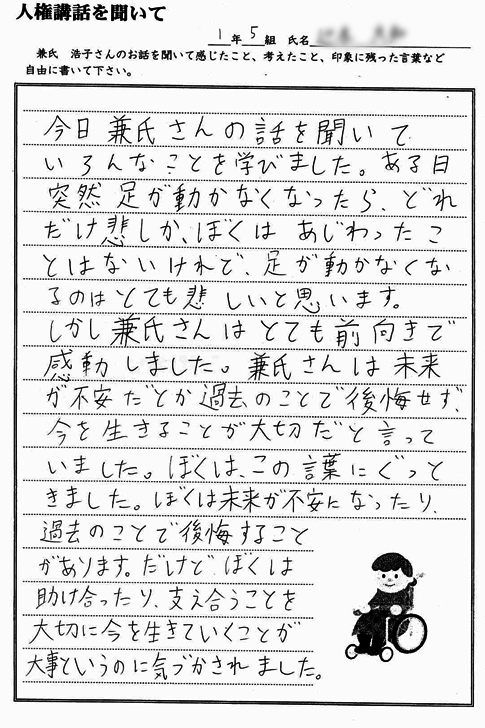 人権講話を聞いて
1年5組 氏名
兼氏 浩子さんのお話を聞いて感じたこと、考えたこと、印象に残った言葉など
自由に書いて下さい。
今日兼氏さんの話を聞いて
いろんなことを学びました。ある日
突然足が動かなくなったら、どれ
だけ悲しか、ぼくはあじわったこ
とはないけれで、足が動かなくな
るのはとても悲しいと思います。
しかし兼氏さんはとても前向きで
感動しました。兼氏さんは未来
が不安だとか過去のことで後悔せず、
今を生きることが大切だと言って
いました。ぼくは、この言葉にぐっと
きました。ぼくは未来が不安になったり、
過去のことで後悔すること
があります。だけど、ぼくは
助け合ったり、支え合うことを
大切に今を生きていくことが
大事というのに気づかされました。